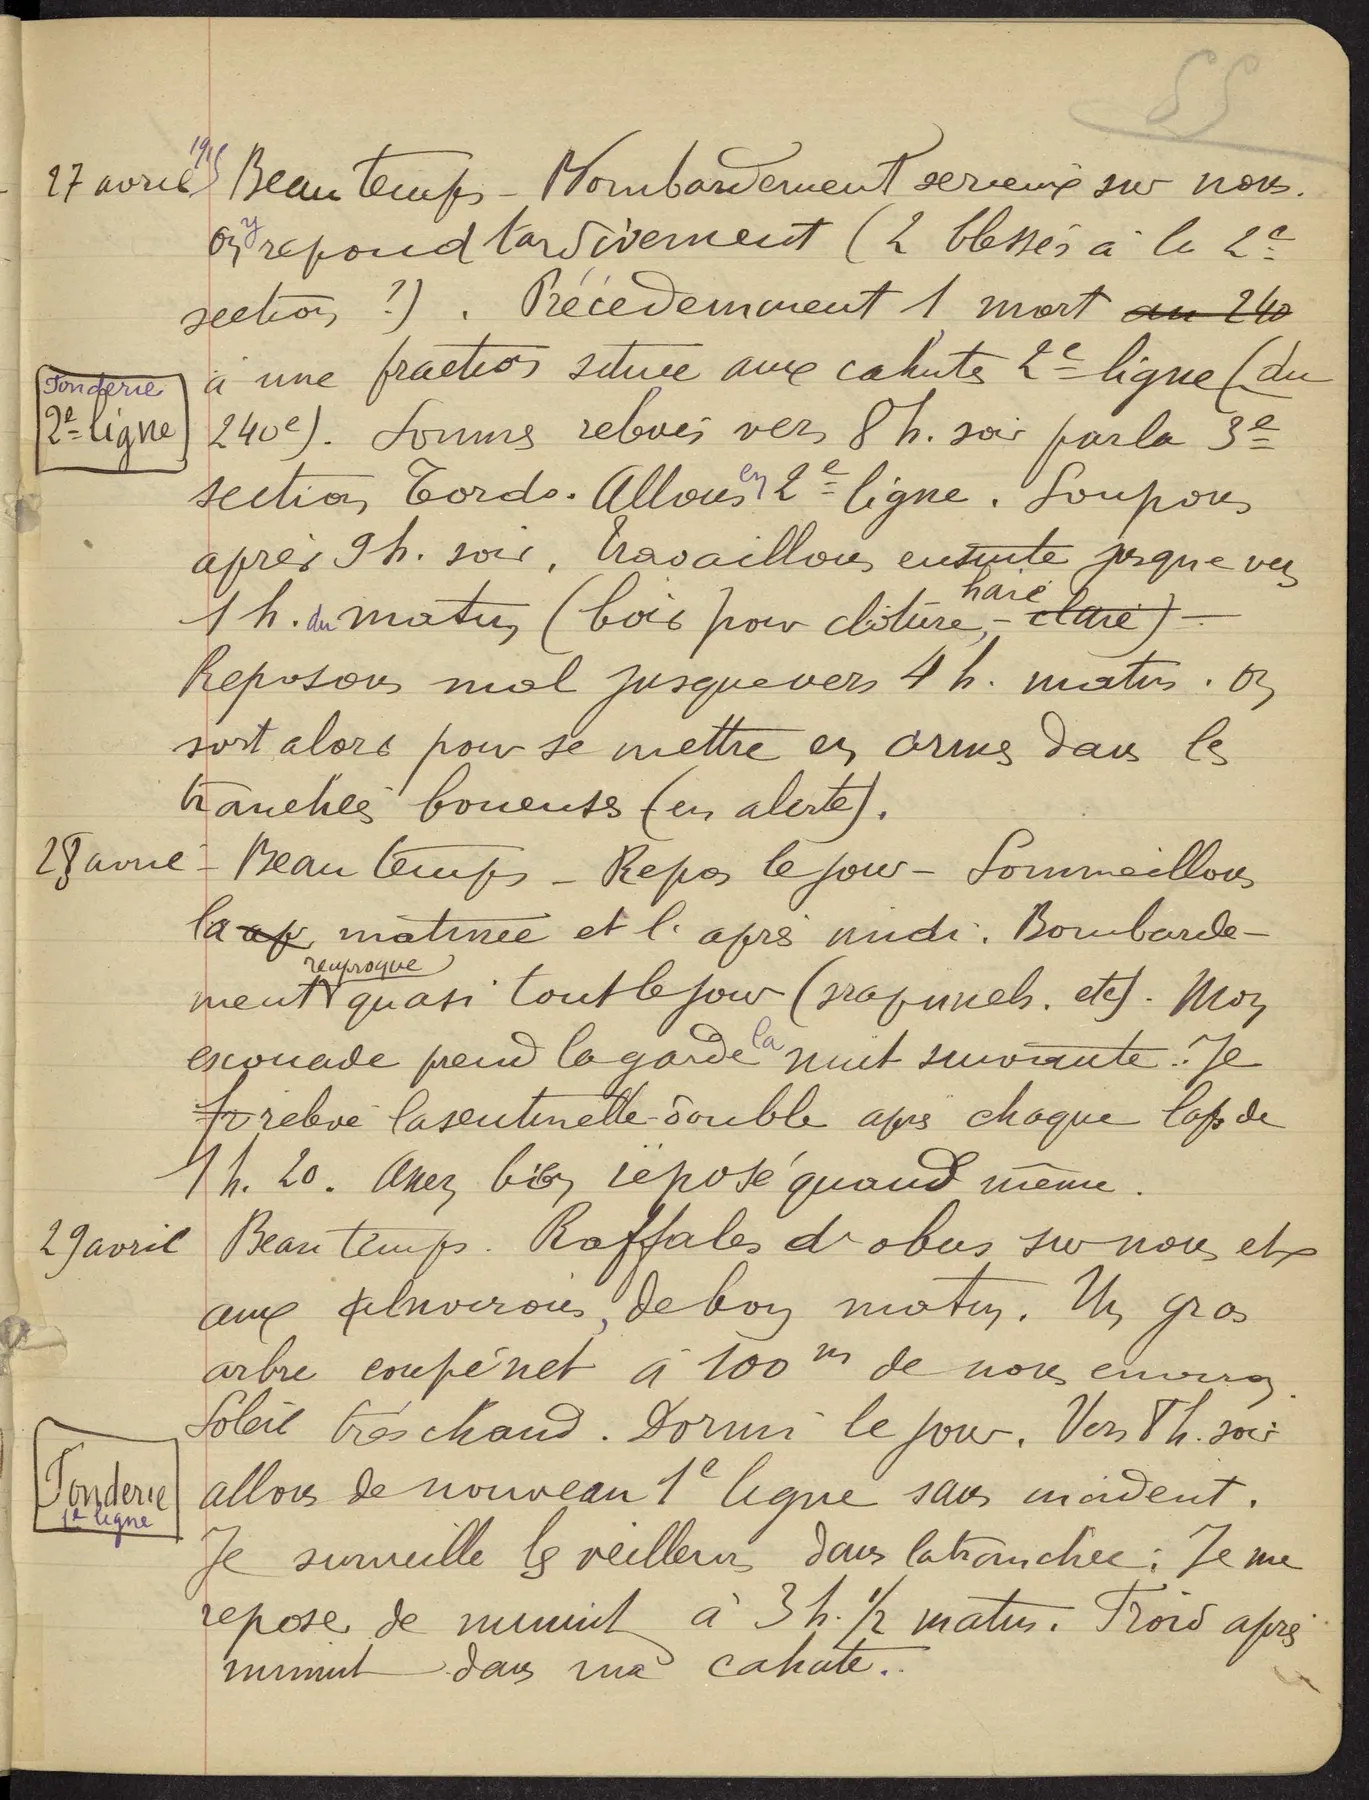 55
27 avril 1915 Beau temps - Bombardement serieux sur nous.
On y repond tardivement (2 blessés à la 2e
section ?). Précedemment 1 mort au 240
à une fraction située aux cahutes 2e ligne (du
Fonderie
2e ligne
240e). Somms relevés vers 8 h. soir par la 3e
section Tordo. Allons en 2e ligne. Soupons
après 9 h. soir. Travaillons ensuite jusque vers
1 h. du matin (bois pour clôture, - claie haie) -
Reposons mal jusque vers 4 h. matin. On
sort alors pour se mettre en armes dans les
tranchées boueuses (en alerte).
28 avril - Beau temps - Repos le jour - Sommeillons
la ap matinée et l'après midi. Bombarde-
ment réciproque quasi tout le jour (srapnnels. etc). Mon
escouade prend la garde la nuit suivante. Je
relève la sentinelle double après chaque laps de
1 h. 20. Assez bien reposé quand même.
29 avril Beau temps. Raffales d'obus sur nous et
aux, de bon matin. Un gros
arbre coupé net à 100 m de nous environ.
Soleil très chaud. Dormi le jour. Vers 8 h. soir
Fonderie
1e ligne
allons de nouveau 1e ligne sans incident.
Je surveille les veilleurs dans la tranchée. Je me
repose de minuit à 3 h. 1/2 matin. Froid après
minuit dans ma cahute.